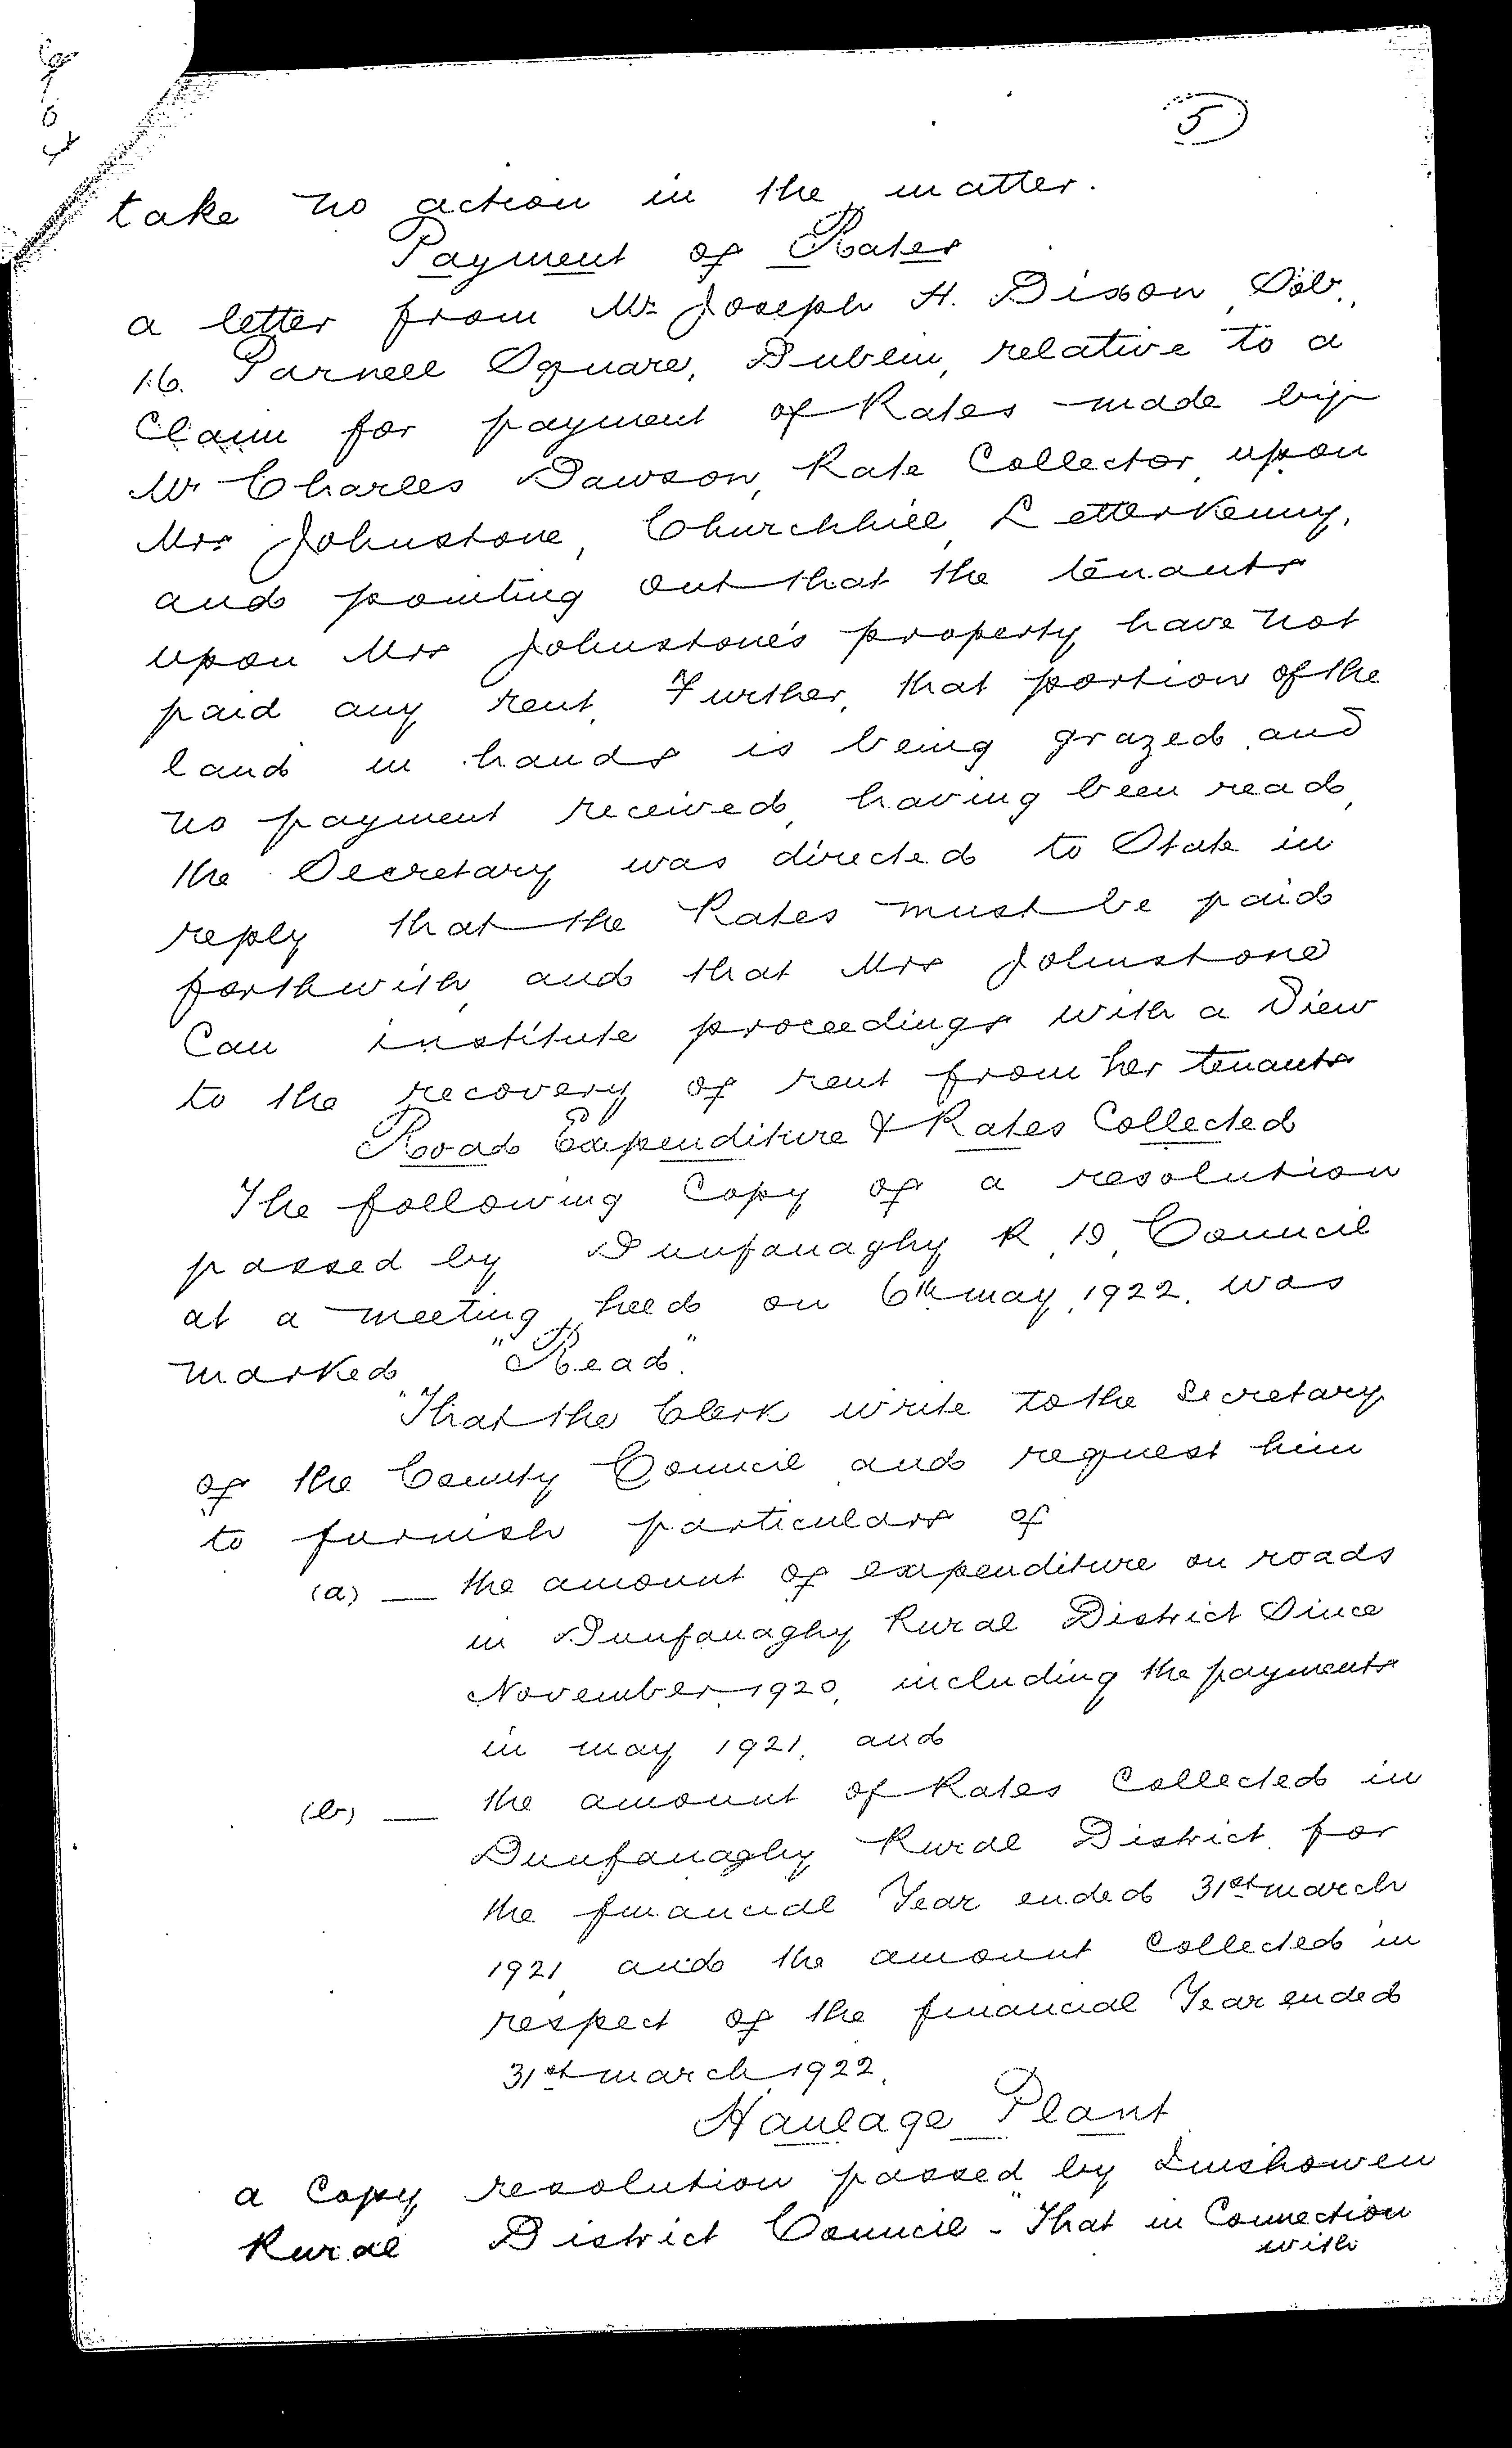 5
take no action in the matter.
Payment of Rates
a letter from Mr Joseph H. Dixon, Solr.,
16. Parnell Square, Dublin, relative to a
Claim for payment of Rates made by
Mr Charles Dawson, Rate Collector, upon
Mrs Johnstone, Churchhill, Letterkenny,
and pointing out that the tenants
upon Mrs Johnstone's property have not
paid any rent. Further, that portion of the
land in hands is being grazed and
no payment received, having been read,
the Secretary was directed to State in
reply that the Rates must be paid
forthwith, and that Mrs Johnstone
Can institute proceedings with a View
to the recovery of rent from her tenants
Road Expenditure & Rates Collected
The following Copy of a resolution
passed by Dunfanaghy R. D. Council
at a meeting held on 6th may, 1922, was
marked "Read".
"That the Clerk write to the Secretary
of the County Council and request him
to furnish particulars of
(a) — the amount of expenditure on roads
in Dunfanaghy Rural District Since
November, 1920, including the payments
in may 1921, and
(b) — the amount of Rates Collected in
Dunfanaghy Rural District for
the financial Year ended 31st march
1921, and the amount Collected in
respect of the financial Year ended
31st march, 1922.
Haulage Plant
a Copy resolution passed by Inishowen
Rural District Council - "That in Connection
with